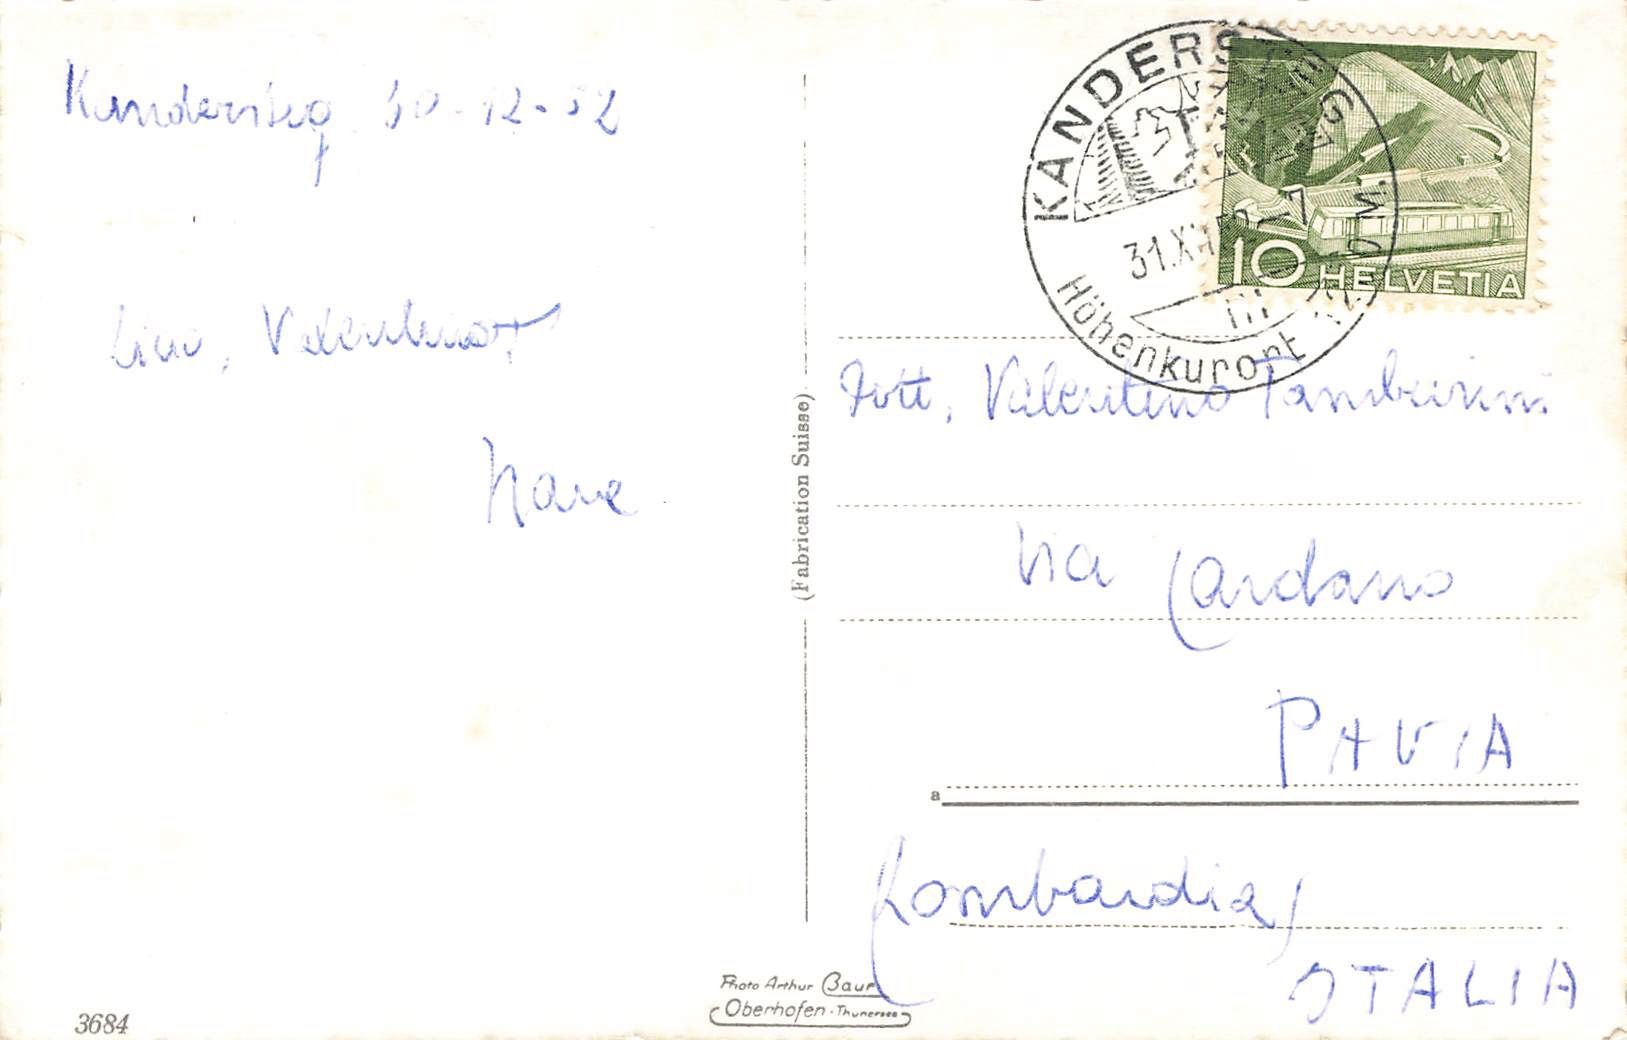 Kandersteg 30-12-52
Ciao, Valentino!
(Fabrication Suisse)
KANDERSTEG
31.XII.52
1200 M.Ü.M.
Höhenkurort
10 HELVETIA
Dott. Valentino Tamburini
Via Cardano
PAVIA
a
(Lombardia)
ITALIA
Photo Arthur Baur
Oberhofen - Thunersee
3684